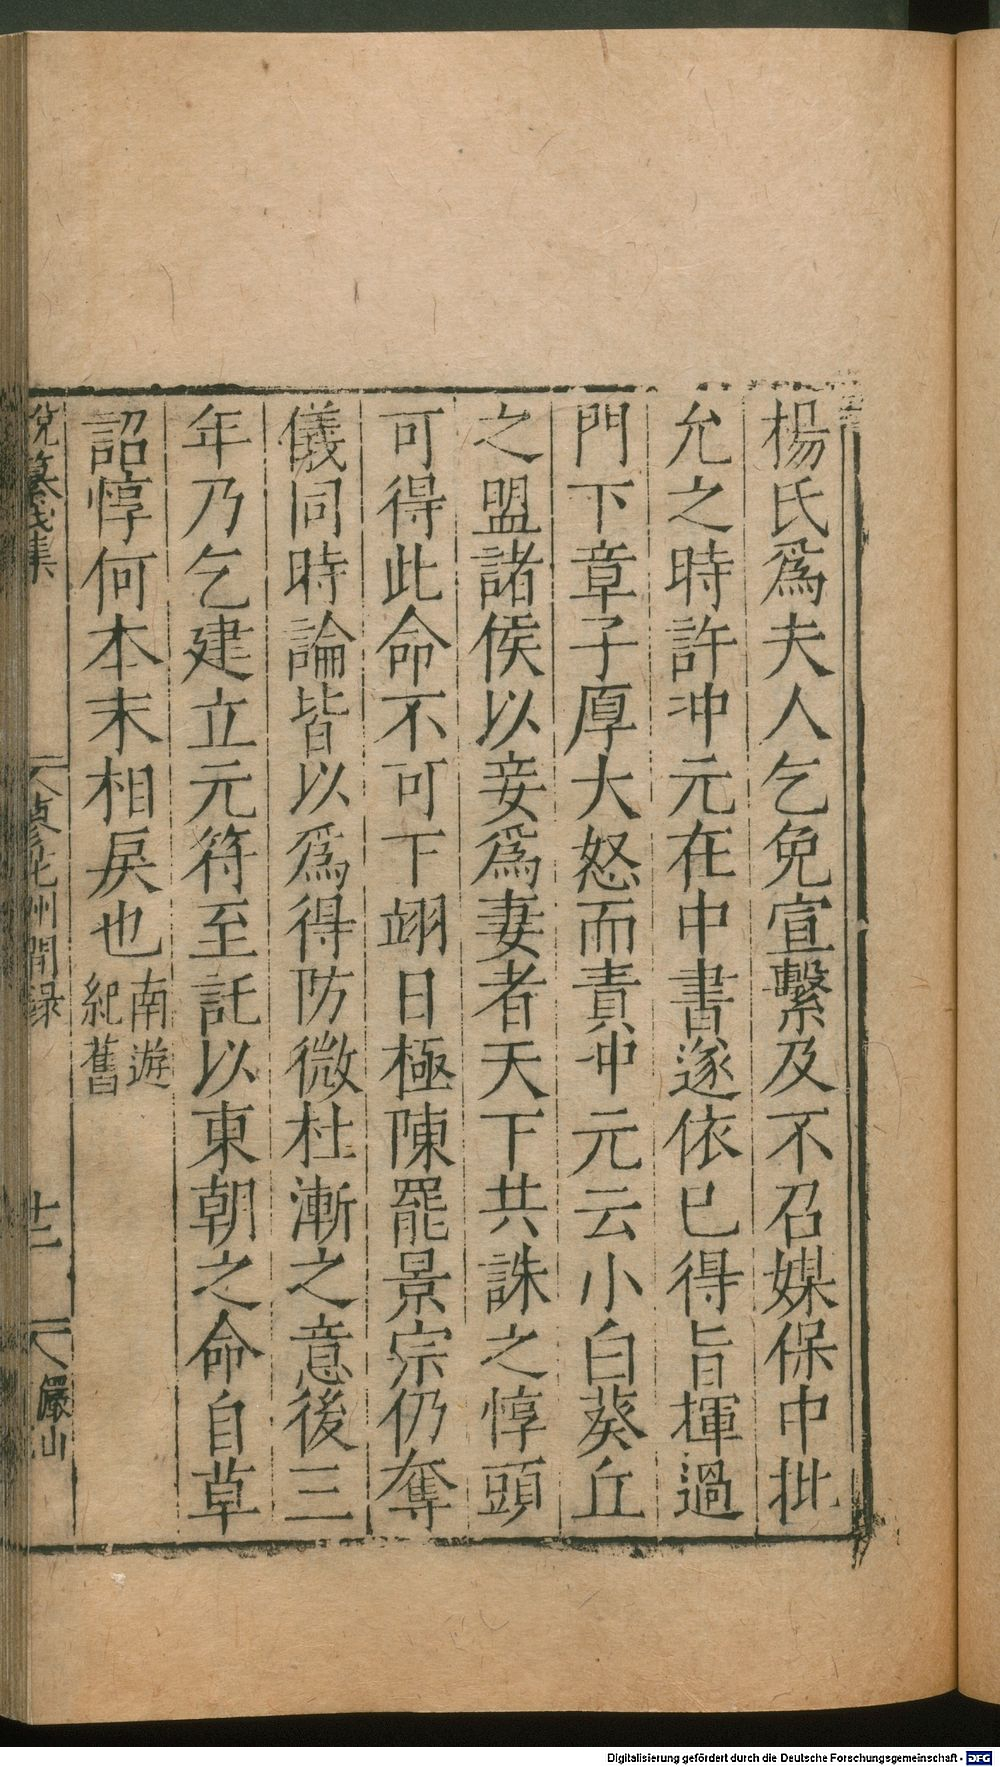 楊氏爲夫人乞免宣繫及不召媒保中批
允之時許冲元在中書遂依已得旨揮過
門下章子厚大怒而責冲元云小白葵丘
之盟諸侯以妾爲妻者天下共誅之惇頭
可得此命不可下翊日極陳罷景宗仍奪
儀同時論皆以爲得防微杜漸之意後三
年乃乞建立元符至託以東朝之命自草
詔惇何本末相戾也南遊
紀舊
集
州閒録
十二
嚴山
Digitalisierung gefördert durch die Deutsche Forschungsgemeinschaft - DFG